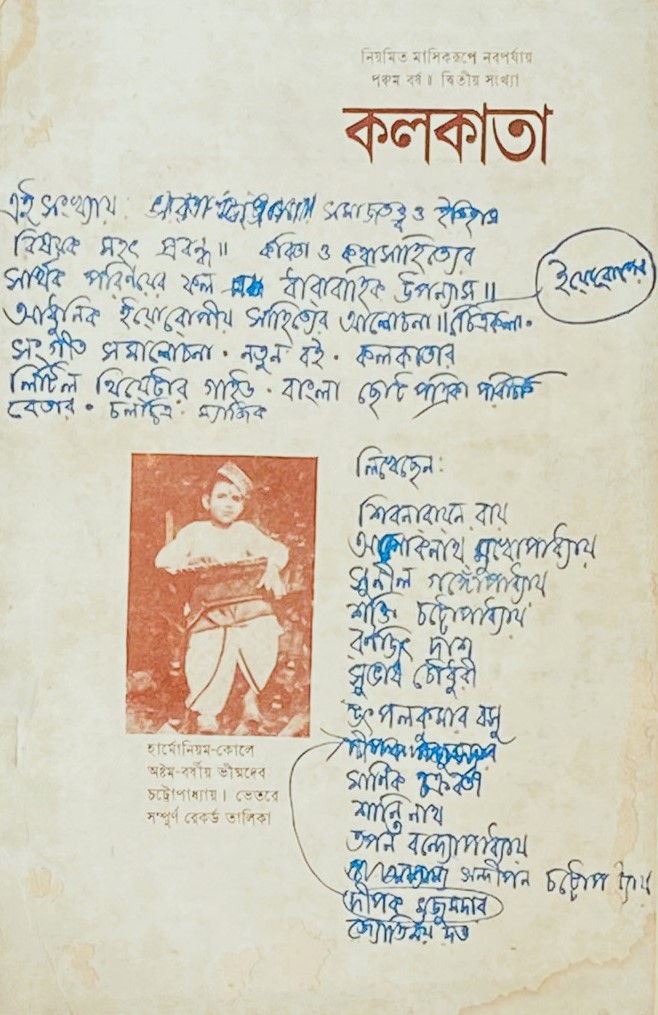 নিয়মিত মাসিকরূপে নবপর্যায়
পঞ্চম বর্ষ ॥ দ্বিতীয় সংখ্যা
কলকাতা
এই সংখ্যায় : সমাজতত্ত্ব ও ইতিহাস
বিষয়ক মহৎ প্রবন্ধ ॥ কবিতা ও কথাসাহিত্যের
সার্থক পরিণয়ের ফল ধারাবাহিক উপন্যাস ॥
ইয়োরোপের
আধুনিক ইয়োরোপীয় সাহিত্যের আলোচনা ॥ চিত্রকলা ·
সংগীত সমালোচনা · নতুন বই · কলকাতার
লিটিল থিয়েটার গাইড · বাংলা ছোট পত্রিকা পরিচিতি
বেতার · চলচ্চিত্র · ম্যাজিক
লিখেছেন :
শিবনারায়ন রায়
আলোকনাথ মুখোপাধ্যায়
সুনীল গঙ্গোপাধ্যায়
শক্তি চট্টোপাধ্যায়
রণজিৎ দাশ
সুভাষ চৌধুরী
উৎপলকুমার বসু
মানিক চক্রবর্তী
শান্তি নাথ
তপন বন্দ্যোপাধ্যায়
সন্দীপন চট্টোপাধ্যায়
দীপক মজুমদার
জ্যোতির্ময় দত্ত
হার্মোনিয়ম-কোলে
অষ্টম-বর্ষীয় ভীষ্মদেব
চট্টোপাধ্যায়। ভেতরে
সম্পূর্ণ রেকর্ড তালিকা